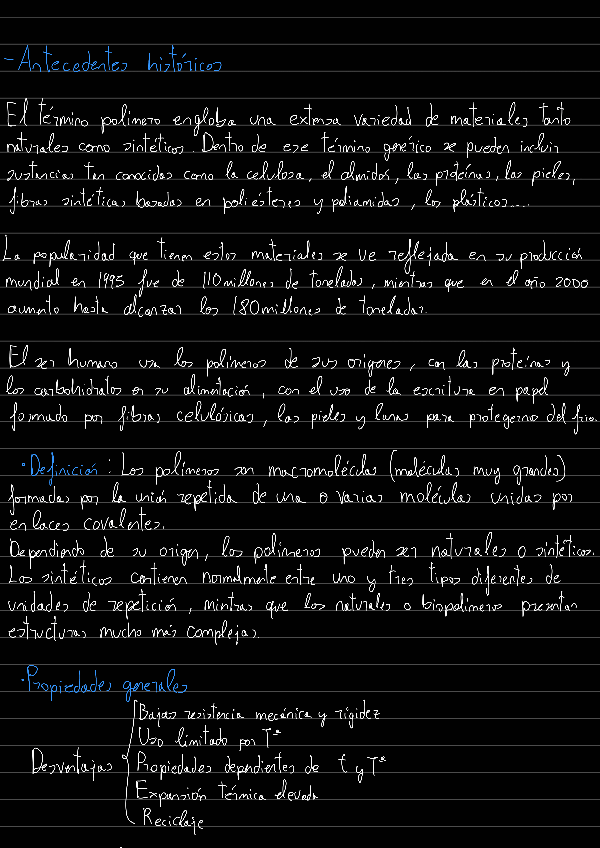 - Antecedentes históricos
El término polímero engloba una extensa variedad de materiales tanto
naturales como sintéticos. Dentro de ese término genérico se pueden incluir
sustancias tan conocidas como la celulosa, el almidos, las proteínas, las pieles,
fibras sintéticas basadas en poliésteres y poliamidas, los plásticos....
La popularidad que tienen estos materiales se ve reflejada en su producción
mundial en 1995 fue de 110 millones de toneladas, mientras que en el año 2000
aumento hasta alcanzar los 180 millones de toneladas.
El ser humano usa los polímeros de sus origenes, con las proteínas y
los carbohidratos en su alimentación, con el uso de la escritura en papel
formado por fibras celulósicas, las pieles y lanas para protegerno del frio.
· Definición: Los polímeros son macromoléculas (moléculas muy grandes)
formadas por la unión repetida de una o varias moléculas unidas por
enlaces covalentes.
Dependiendo de su origen, los polimeros pueden ser naturales o sintéticos.
Los sintéticos contienen normalmente entre uno y tres tipos diferentes de
unidades de repetición, mintras que los naturales o biopolímeros presentan
estructuras mucho más complejas.
· Propiedades generales
Desventajas
Bajas resistencia mecánica y rigidez
Uso limitado por Tª
Propiedades dependientes de t y Tª
Expansión térmica elevada
Reciclaje